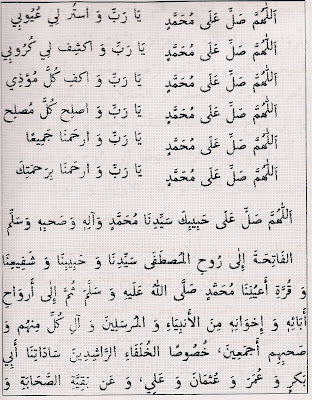 اَللّٰهُمَّ صَلِّ عَلَى مُحَمَّدٍ يَا رَبِّ وَ اسْتُرْ لِي عُيُوْبِي
اَللّٰهُمَّ صَلِّ عَلَى مُحَمَّدٍ يَا رَبِّ وَ اكْشِفْ لِي كُرُوْبِي
اَللّٰهُمَّ صَلِّ عَلَى مُحَمَّدٍ يَا رَبِّ وَ اكْفِ كُلَّ مُؤْذِي
اَللّٰهُمَّ صَلِّ عَلَى مُحَمَّدٍ يَا رَبِّ وَ اصْلِحْ كُلَّ مُصْلِحْ
اَللّٰهُمَّ صَلِّ عَلَى مُحَمَّدٍ يَا رَبِّ وَ ارْحَمْنَا جَمِيْعًا
اَللّٰهُمَّ صَلِّ عَلَى مُحَمَّدٍ يَا رَبِّ وَ ارْحَمْنَا بِرَحْمَتِكَ
اَللّٰهُمَّ صَلِّ عَلَى حَبِيْبِكَ سَيِّدِنَا مُحَمَّدٍ وَآلِهِ وَصَحْبِهِ وَسَلِّمْ
الفَاتِحَةَ إِلَى رُوحِ المُصْطَفَى سَيِّدِنَا وَ حَبِيْبِنَا وَ شَفِيْعِنَا
وَ قُرَّةِ أَعْيُنِنَا مُحَمَّدٍ صَلَّى اللّٰهُ عَلَيْهِ وَ سَلَّمَ ثُمَّ إِلَى أَرْوَاحِ
أَبَائِهِ وَ إِخْوَانِهِ مِنَ الأَنْبِيَاءِ وَ المُرْسَلِيْنَ وَ آلِ كُلٍّ مِنْهُمْ وَ
صَحْبِهِمْ أَجْمَعِيْنَ، خُصُوْصًا الخُلَفَاءِ الرَّاشِدِيْنَ سَادَاتِنَا أَبِي
بَكْرٍ وَ عُمَرَ وَ عُثْمَانَ وَ عَلِيٍّ، وَ عَنْ بَقِيَّةِ الصَّحَابَةِ وَ